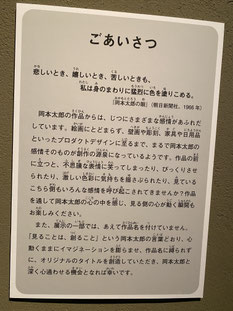 ごあいさつ
悲しいとき、嬉しいとき、苦しいときも、
私は身のまわりに猛烈に色を塗りこめる。
（岡本太郎の眼）（朝日新聞社、1966 年）
岡本太郎の作品からは、じつにさまざまな感情があふれだ
しています。絵画にとどまらず、壁画や彫刻、家具や日用品
といったプロダクトデザインに至るまで、まるで岡本太郎の
感情そのものが創作の源泉になっているようです。作品の前
に立つと、不思議な表情に笑ってしまったり、びっくりさせ
られたり、激しい色彩に気持ちを揺さぶられたり、見ている
こちら側もいろんな感情を呼び起こされてきませんか？作品
を通して岡本太郎の心の中を感じ、見る側の心が動く瞬間も
お楽しみください。
また、展示の一部では、あえて作品名を付けていません。
「見ることは、創ること」という岡本太郎の言葉どおり、心
動くままにイマジネーションを膨らませ、作品名に縛られず
に、オリジナルのタイトルを創造していただき、岡本太郎と
深く心通わせる機会となれば幸いです。